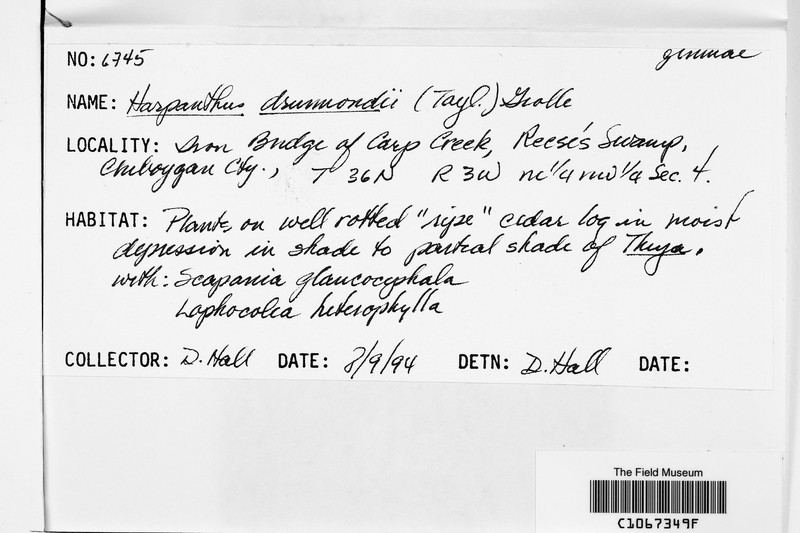 NO: 6745 gemmae
NAME: Harpanthus drummondii (Tayl.) Grolle
LOCALITY: Iron Bridge of Carp Creek, Reese's Swamp,
Cheboygan Cty., T 36N R 3W ne 1/4 nw 1/4 Sec. 4.
HABITAT: Plants on well rotted "ripe" cedar log in moist
depression in shade to partial shade of Thuja.
with: Scapania glaucocephala
Lophocolea heterophylla
COLLECTOR: D. Hall DATE: 8/9/94 DETN: D. Hall DATE:
The Field Museum
C1067349F